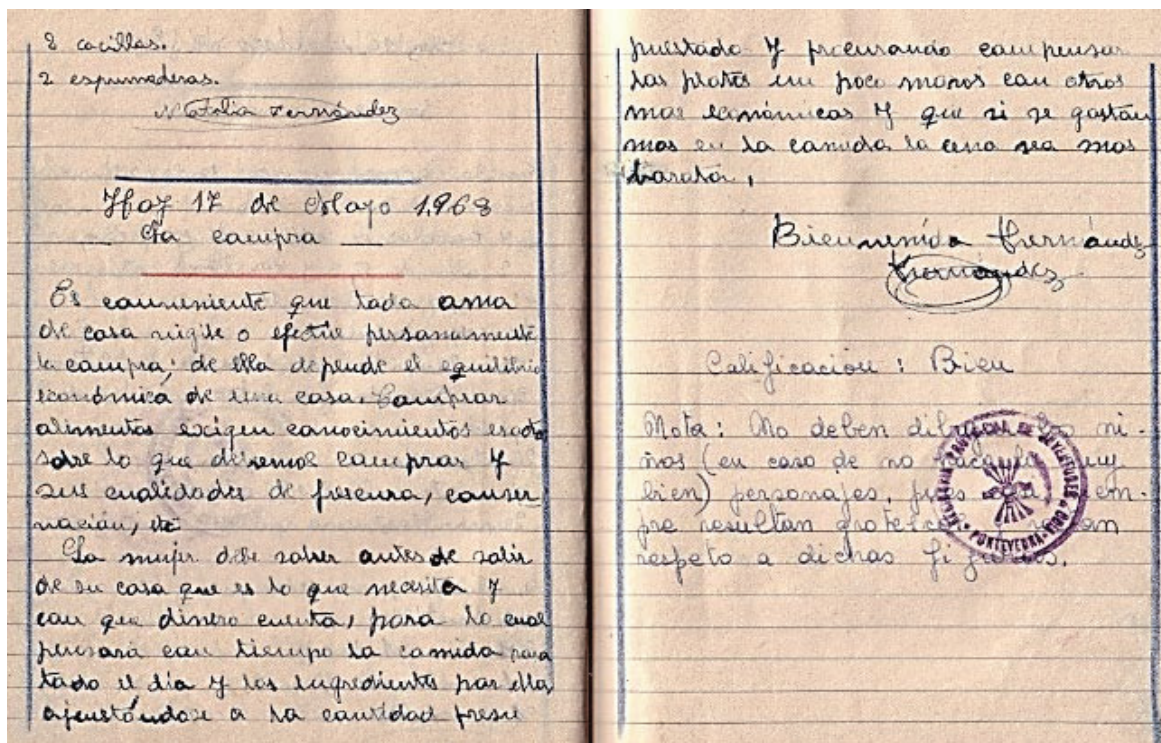 2 cocillas.
2 espumaderas.
Natalia Fernández
Hoy 17 de Mayo 1.968
La compra
Es conveniente que toda ama
de casa vigile o efectúe personalmente
la compra; de ella depende el equilibrio
económica de una casa. Comprar
alimentos exigen conocimientos exactos
sobre lo que debemos comprar y
sus cualidades de frescura, conser
vación, etc
La mujer debe saber antes de salir
de su casa que es lo que necesita y
con que dinero cuenta, para lo cual
pensará con tiempo la comida para
todo el día y los ingredientes por ella
ajustándose a la cantidad presu
puestada y procurando compensar
los platos un poco monos con otros
mas económicos y que si se gastan
mas en la comida la cena sea mas
barata,
Bienvenida Hernández
Hernández
Calificación: Bien
Nota: No deben dibujar los ni-
ños (en caso de no hacerlo muy
bien) personajes, pues
pre resultan
respeto a dichas figuras.
PROVINCIAL DE JUVENTUDES
PONTEVEDRA